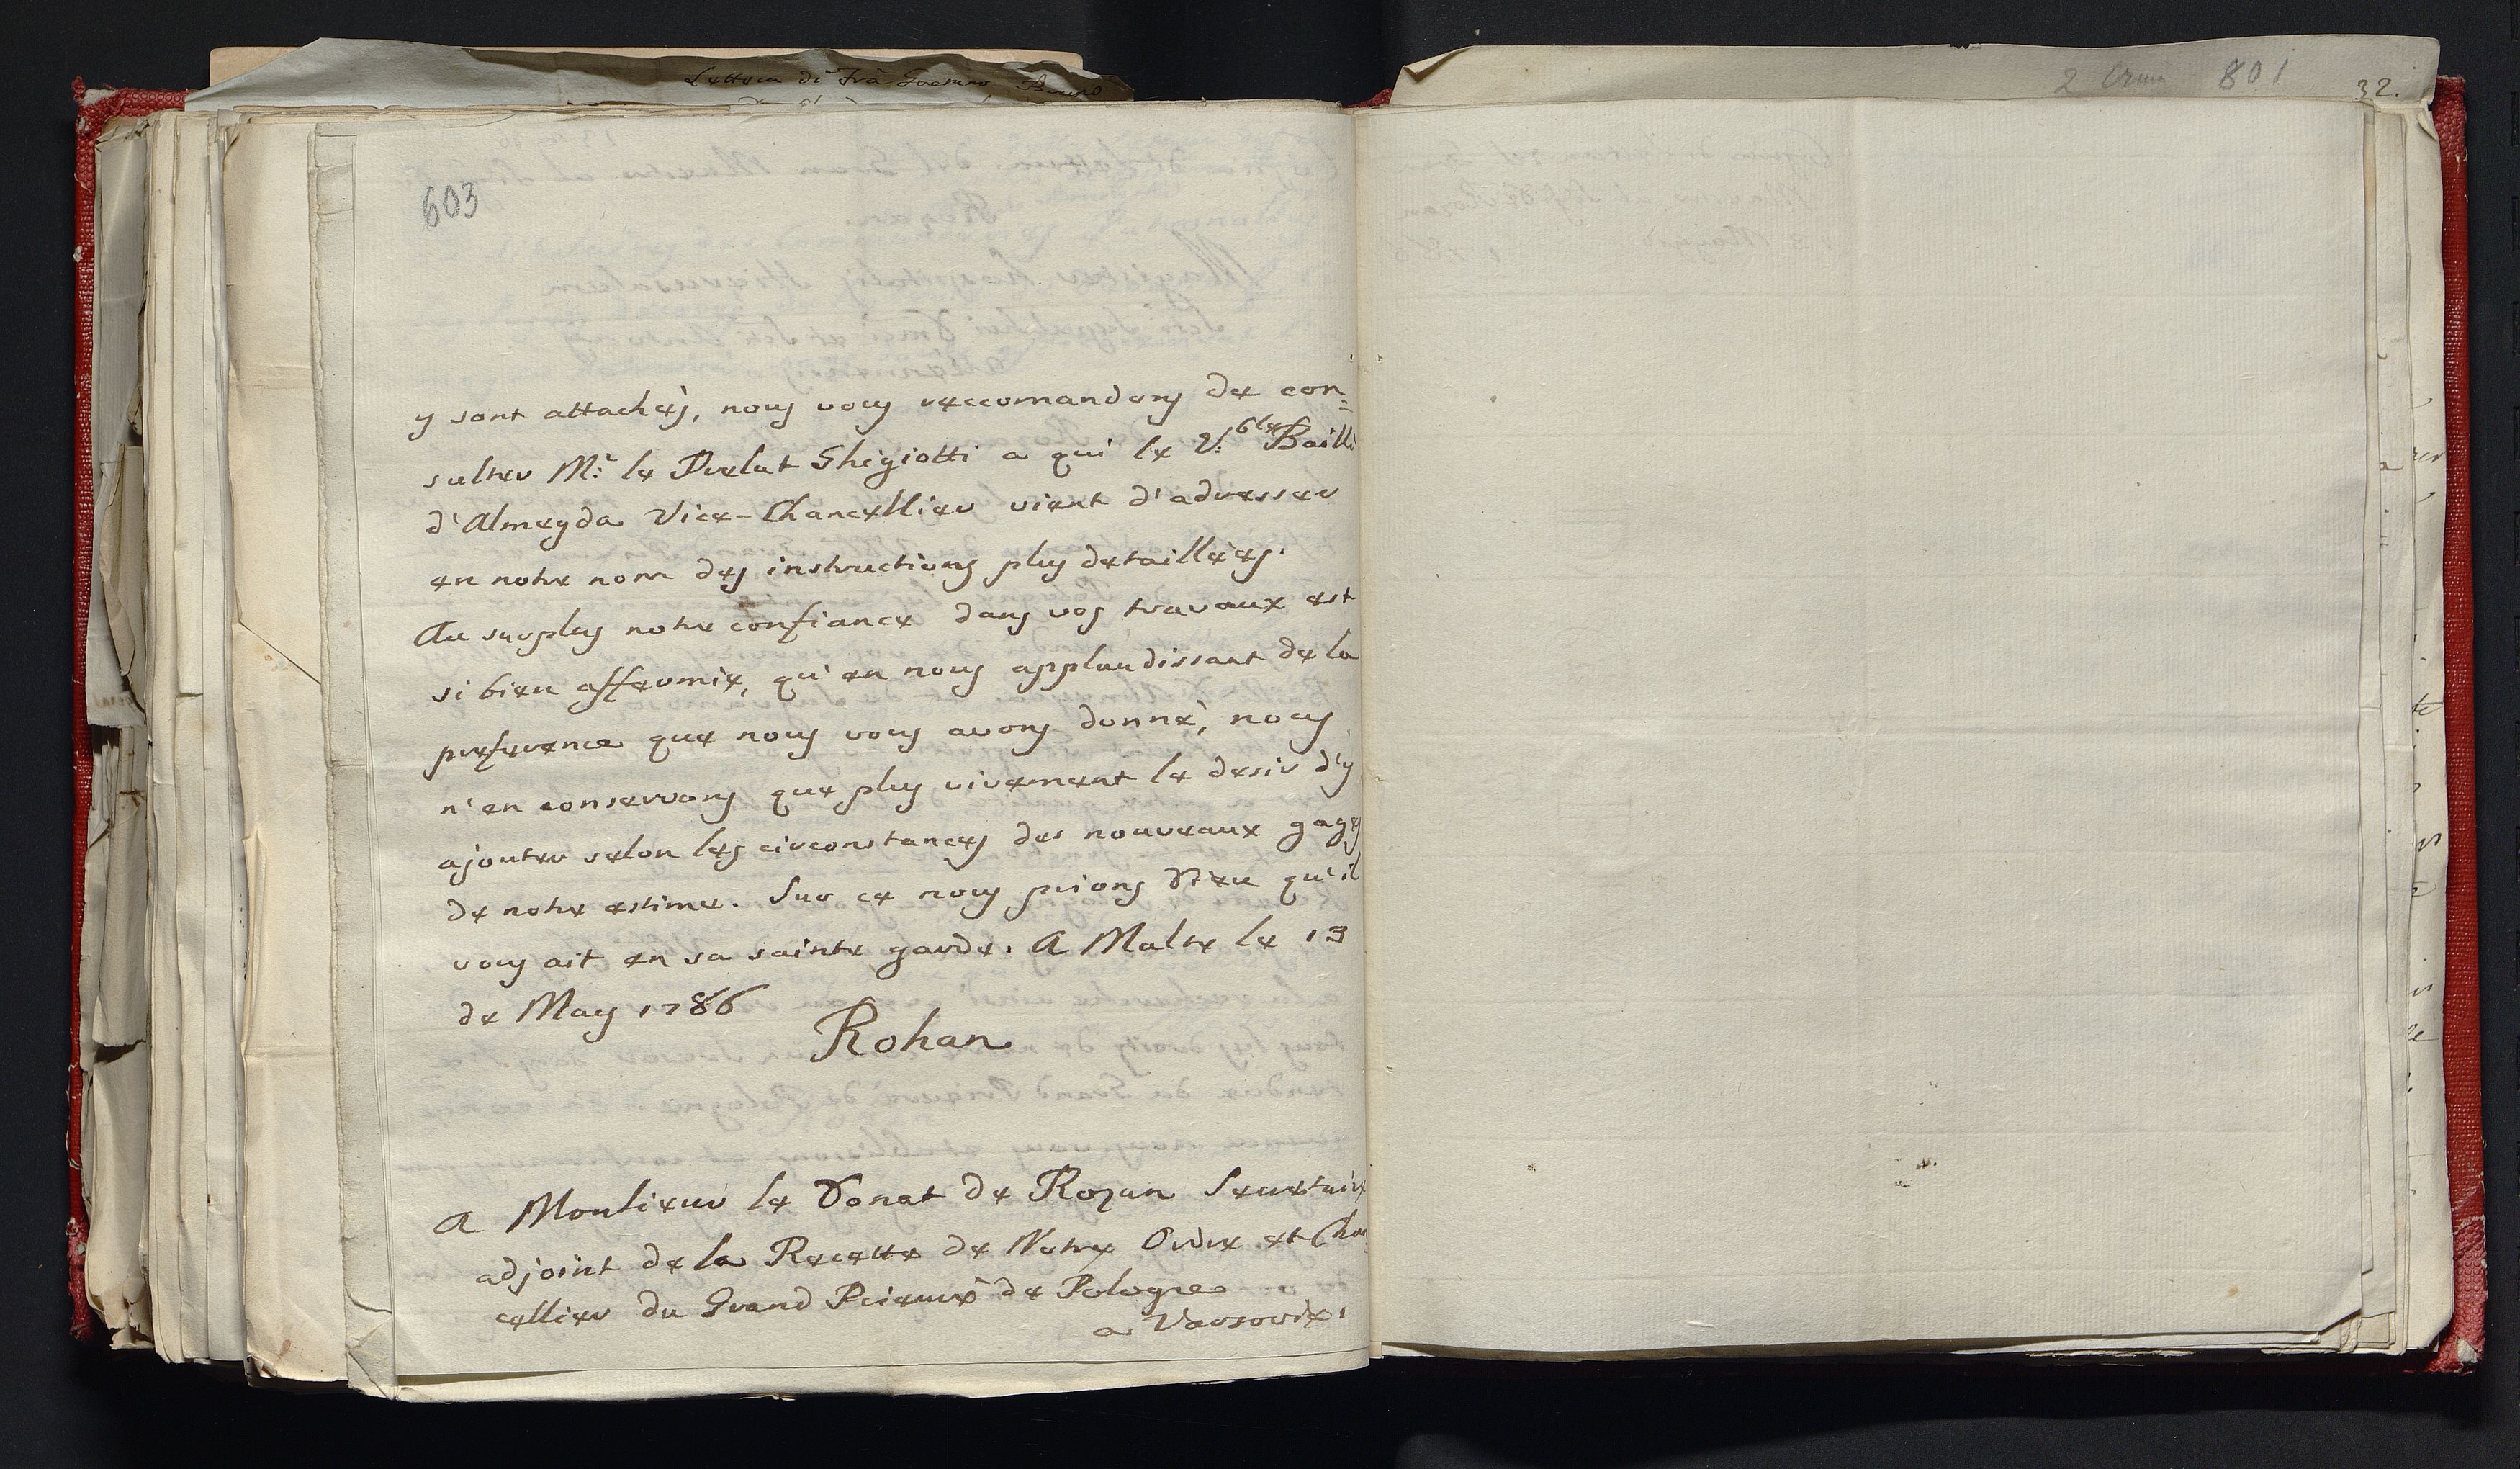 Lettera di Frà Gaetano
2 801
32.
603
y sont attachès, nous vous reccomandons de con=
sulter M.r le Prelat Ghigiotti a qui le V.ble Bailli
d'Almeyda Vice-Chancellier vient d'adresser
en notre nom des instructions plus detaillèes.
Au surplus notre confiance dans vos travaux est
si bien affermie, qu'en nous applaudissant de la
preference que nous vous avons donnè, nous
n'en conservons que plus vivement le desir d'y
ajouter selon les circonstances des nouveaux gages
de notre estime. Sur ce nous prions Dieu qu'il
vous ait en sa sainte garde. A Malte le 13
de May 1786
Rohan
A Monsieur le Donat de Rozan Secretaire
adjoint de la Recette de Notre Ordre et Chan=
cellier du Grand Prieurè de Pologne
a Varsovie.